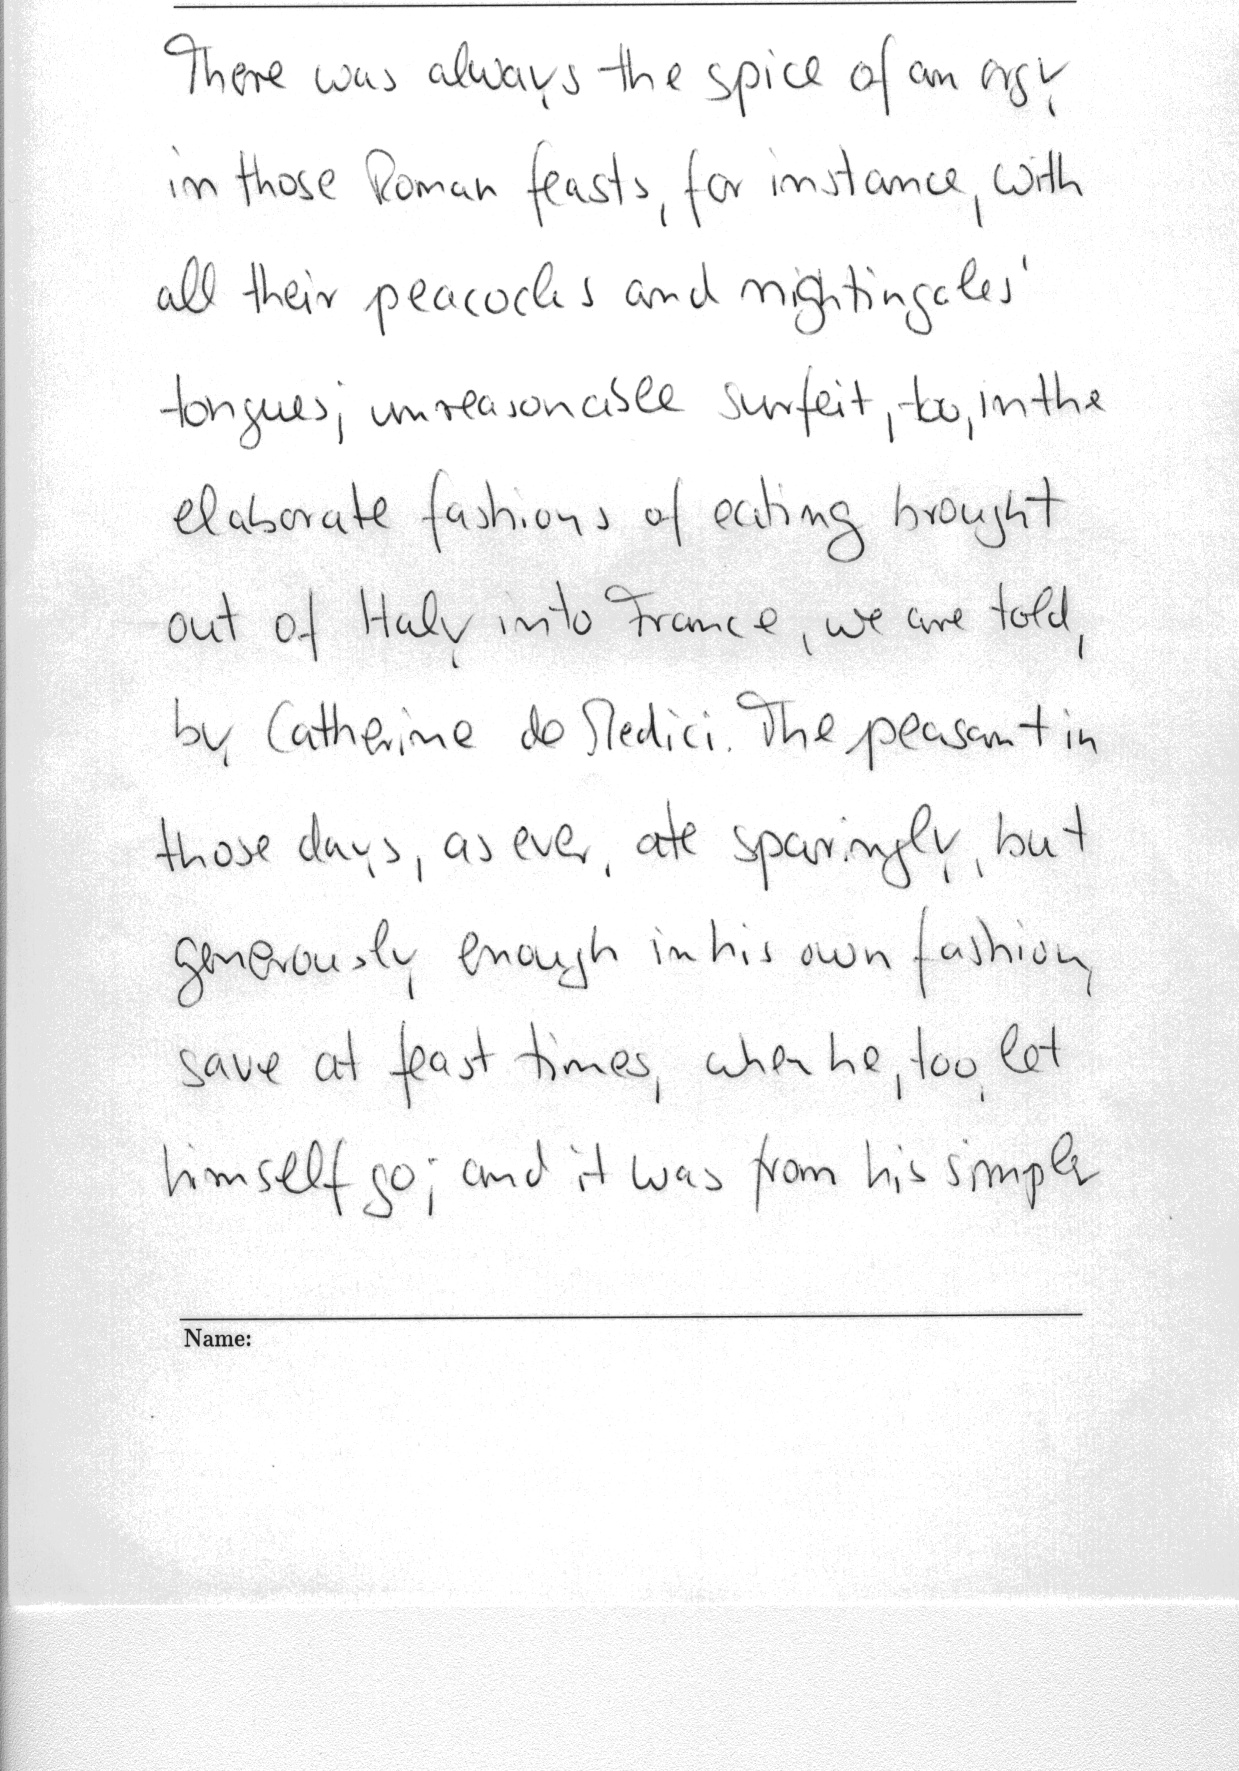 There was always the spice of an orgy
in those Roman feasts, for instance, with
all their peacocks and nightingales'
tongues; unreasonable surfeit, too, in the
elaborate fashions of eating brought
out of Italy into France, we are told,
by Catherine de Medici. The peasant in
those days, as ever, ate sparingly, but
generously enough in his own fashion,
save at feast times, when he, too, let
himself go; and it was from his simple
Name: